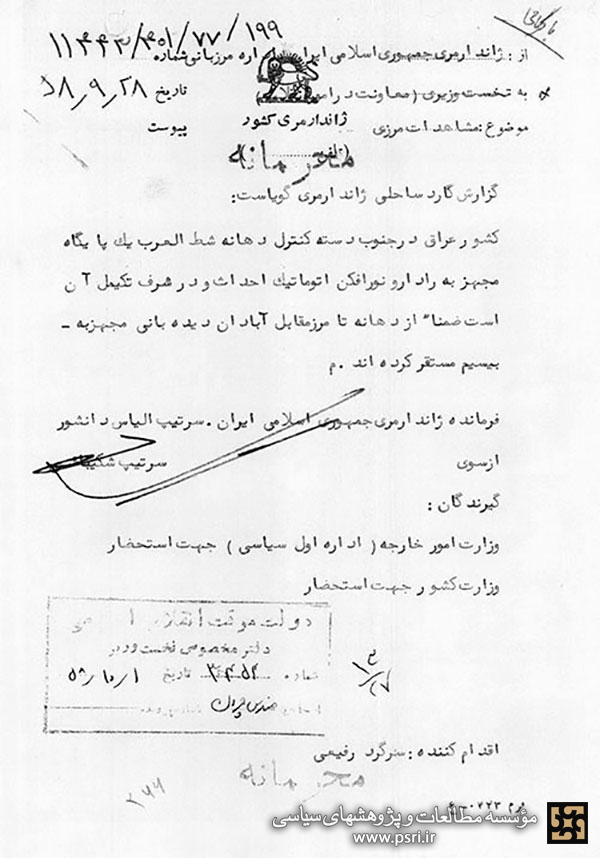 از : ژاندارمری جمهوری اسلامی ایران اداره مرزبانی شماره ۱۱۴۴۳/۴۰۱/۷۷/۱۹۹
به نخست وزیری (معاونت در امور تاریخ ۵۸٫۹٫۲۸
موضوع : مشاهدات مرزی ژاندارمری کشور پیوست
محرمانه
گزارش گارد ساحلی ژاندارمری گویاست :
کشور عراق در جنوب دسته کنترل دهانه شط العرب یك پایگاه
مجهز به رادار و نورافکن اتوماتیك احداث و در شرف تکمیل آن
است ضمنا" از دهانه تا مرز مقابل آبادان دیده بانی مجهز به ـ
بیسیم مستقر کرده اند .م
فرمانده ژاندارمری جمهوری اسلامی ایران . سرتیپ الیاس دانشور
از سوی سرتیپ
گیرندگان :
وزارت امور خارجه ( اداره اول سیاسی ) جهت استحضار
وزارت کشور جهت استحضار
دولت موقت انقلاب
دفتر مخصوص نخست وزیر
شماره تاریخ ۵۸/۱۰/۱
اقدام کننده : سرگرد رفیعی
محرمانه
مؤسسه مطالعات و پژوهشهای سیاسی
www.psri.ir